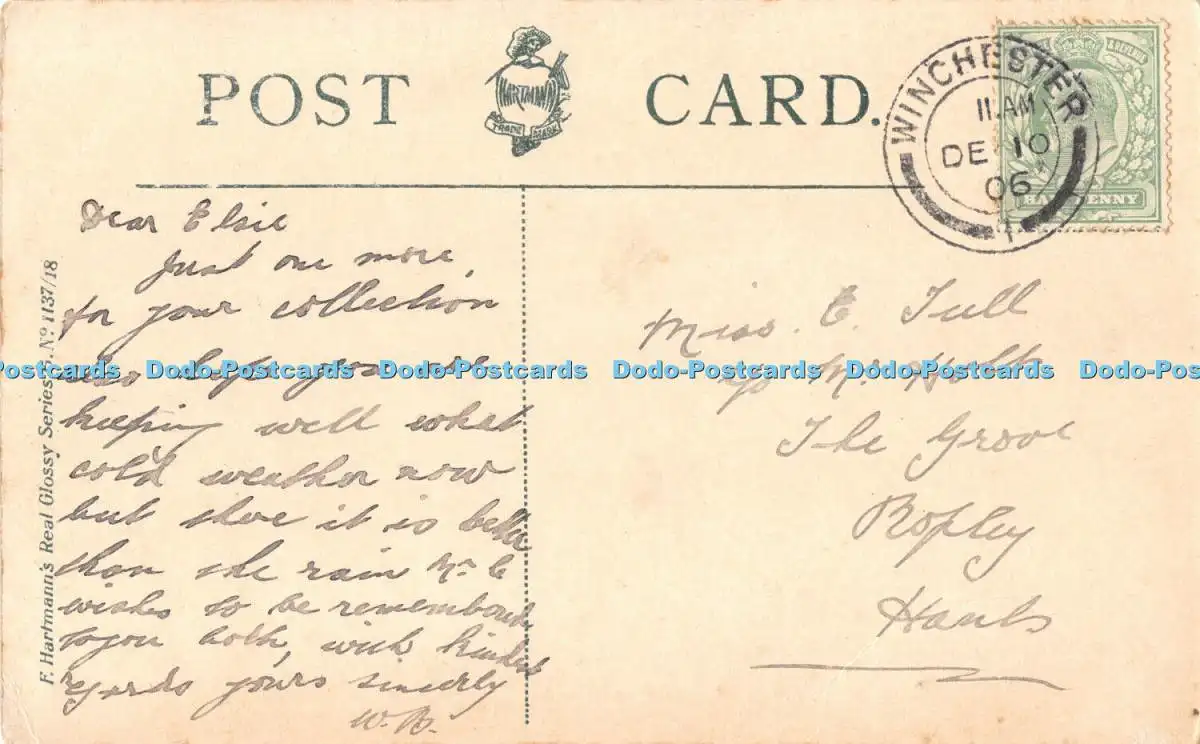 POST CARD.
HARTMANN
TRADE MARK
WINCHESTER
11 AM
DE 10
06
1
HALFPENNY
Dear Elsie
Just one more
for your collection
also hope you are
keeping well what
cold weather now
but there it is better
than the rain Mr C
wishes to be remembered
to you both, with kindest
regards yours sincerely
W.B.
Miss. E. Tull
c/o Mr.
The Grove
Ropley
Hants
F. Hartmann's Real Glossy Series. No 1137/18
Dodo-Postcards Dodo-Postcards Dodo-Postcards Dodo-Postcards Dodo-Postcards Dodo-Postcards